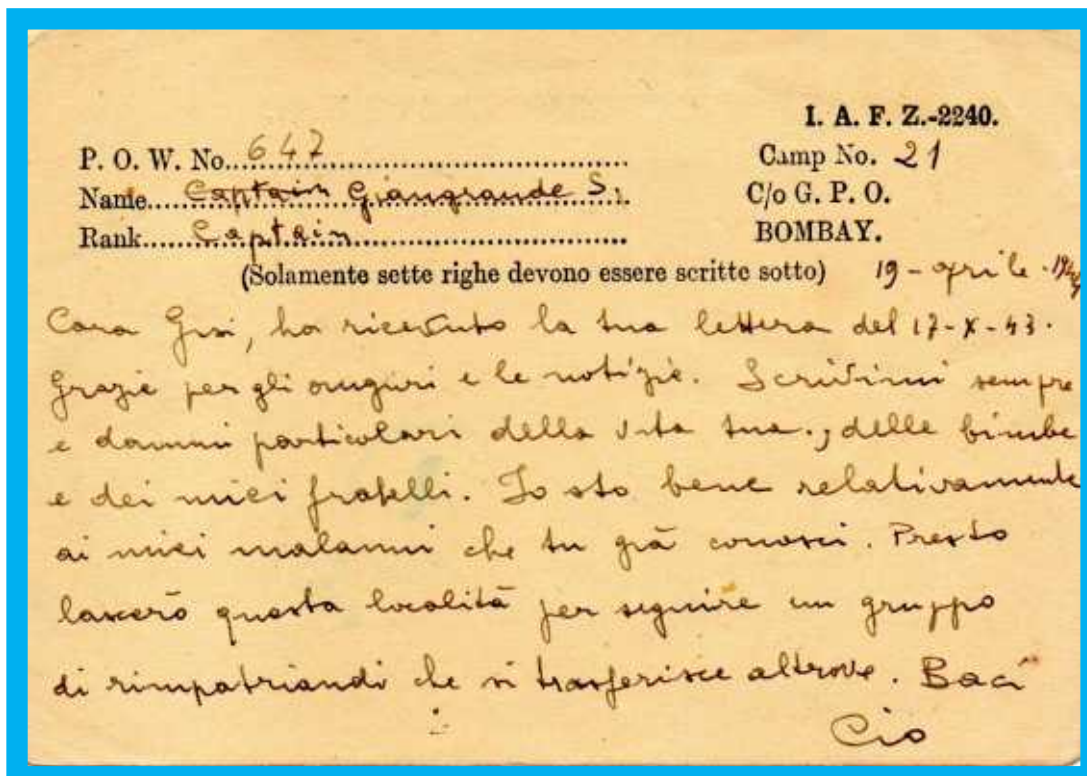 I. A. F. Z.-2240.
P. O. W. No. 647
Camp No. 21
Name Captain Giangrande S.
C/o G. P. O.
Rank Captain
BOMBAY.
(Solamente sette righe devono essere scritte sotto) 19-aprile-1944
Cara Gisi, ho ricevuto la tua lettera del 17-X-43.
Grazie per gli auguri e le notizie. Scrivimi sempre
e dammi particolari della vita tua, delle bimbe
e dei miei fratelli. Io sto bene relativamente
ai miei malanni che tu già conosci. Presto
lascerò questa località per seguire un gruppo
di rimpatriandi che si trasferisce altrove. Baci
Cio